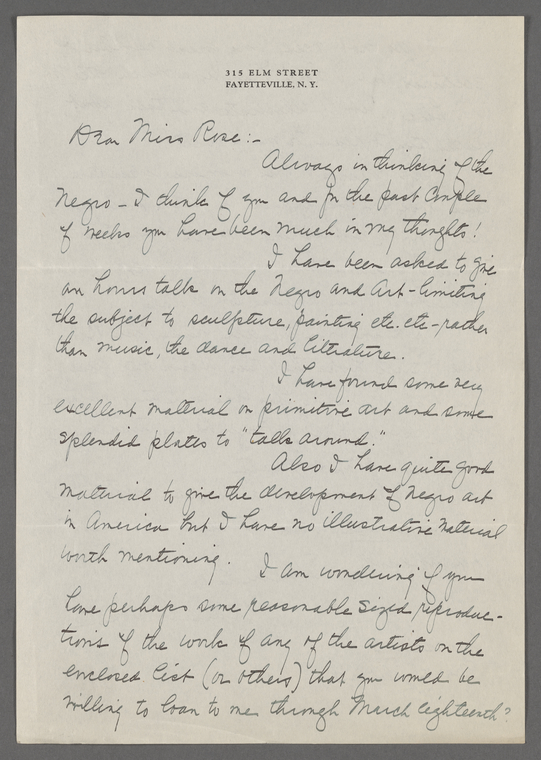 315 ELM STREET
FAYETTEVILLE, N. Y.
Dear Miss Rose:-
Always in thinking of the
Negro - I think of you and for the past couple
of weeks you have been much in my thoughts!
I have been asked to give
an hours talk on the Negro and Art - limiting
the subject to sculpture, painting etc. etc - rather
than music, the dance and literature.
I have found some very
excellent material on primitive art and some
splendid plates to "talk around."
Also I have quite good
material to give the development of Negro art
in America but I have no illustrative material
worth mentioning.
I am wondering if you
have perhaps some reasonable sized reproduc-
tions of the work of any of the artists on the
enclosed list (or others) that you would be
willing to loan to me through March eighteenth?